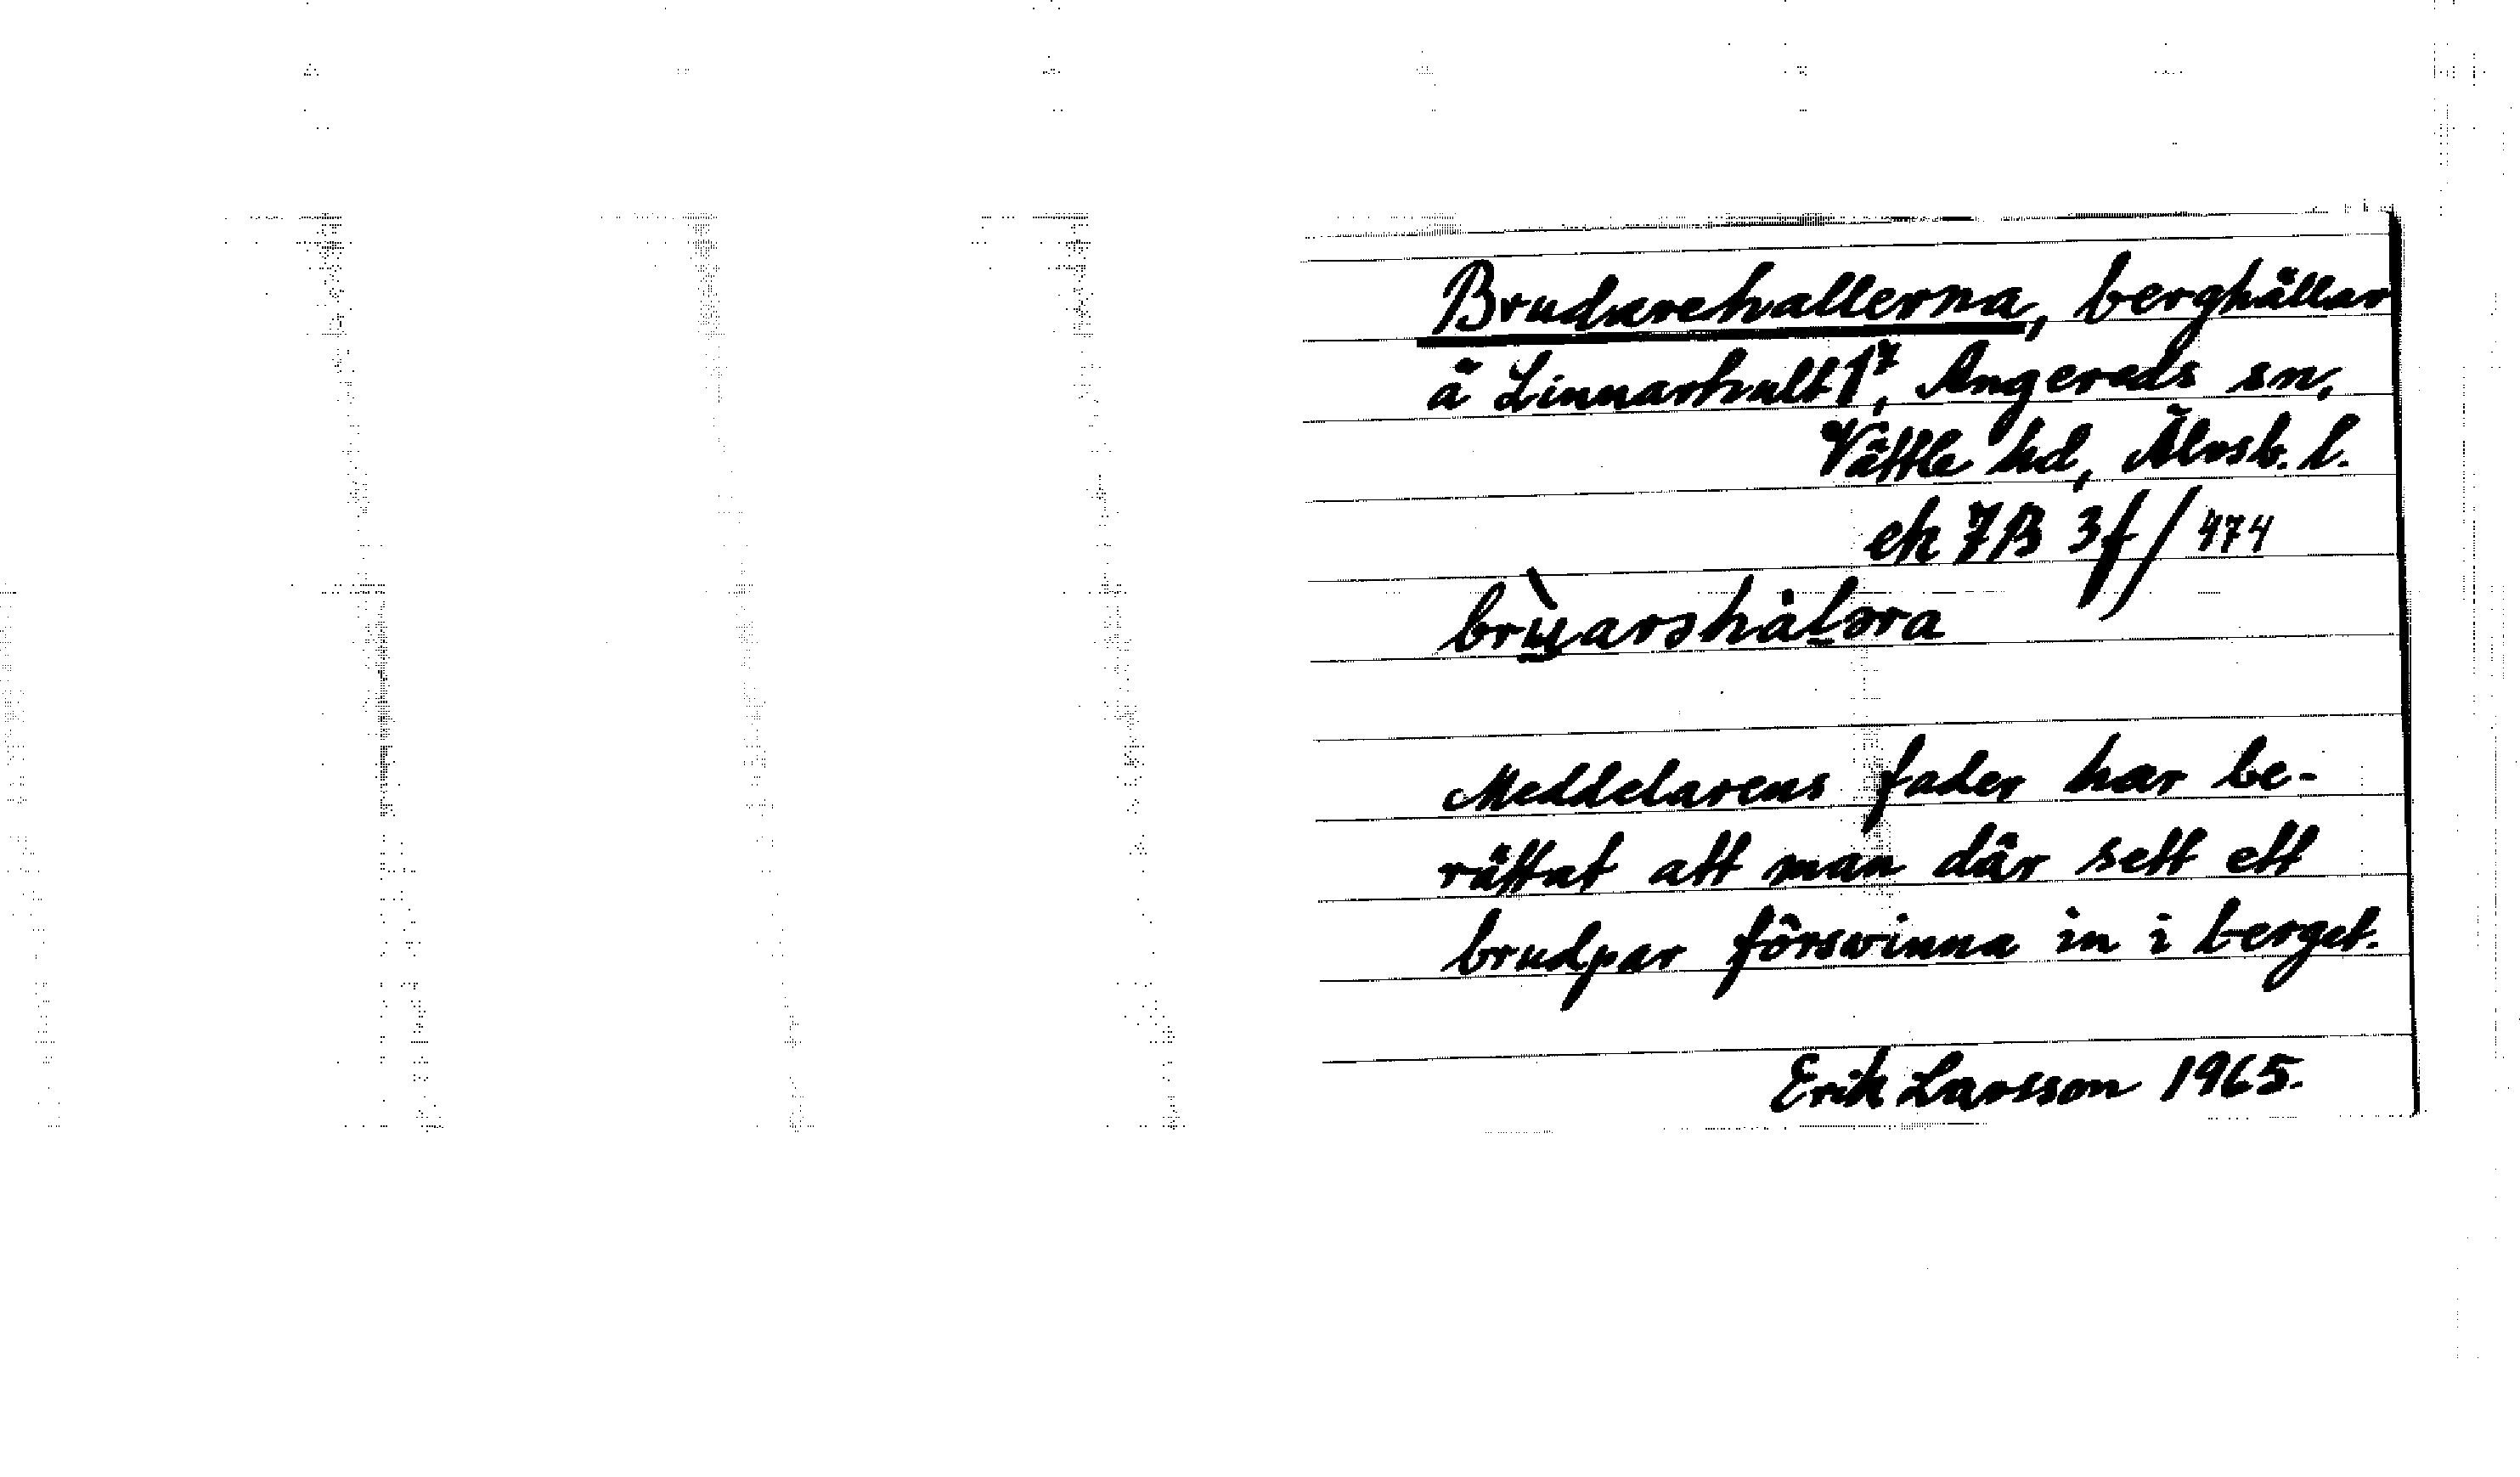 Brudarehallerna, berghällar
å Linnarhult 1⁷, Angereds sn,
Vättle hd, Älvsb. l.
ek 7B 3f/474
brùarshålərа
Meddelarens fader har be-
rättat att man där sett ett
brudpar försvinna in i berget.
Erik Larsson 1965.